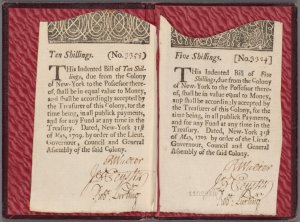 Ten Shillings. (No. 3353)
THis Indented Bill of Ten Shil-
lings, due from the Colony
of New-York to the Possessor there-
of, shall be in equal value to Money,
and shall be accordingly accepted by
the Treasurer of this Colony, for the
time being, in all publick Payments,
and for any Fund at any Time in the
Treasury. Dated, New-York 31st
of May, 1709. by order of the Lieut.
Governour, Council and General
Assembly of the said Colony.
Five Shillings. [No. 3324]
THis Indented Bill of Five
Shillings, due from the Colony
of New-York to the Possessor there-
of, shall be in equal value to Money,
and shall be accordingly accepted
by the Treasurer of this Colony, for
the time being, in all publick Payments,
and for any Fund at any Time in the
Treasury. Dated, New-York 31st
of May, 1709. by order of the Lieut.
Governour, Council and General
Assembly of the said Colony.